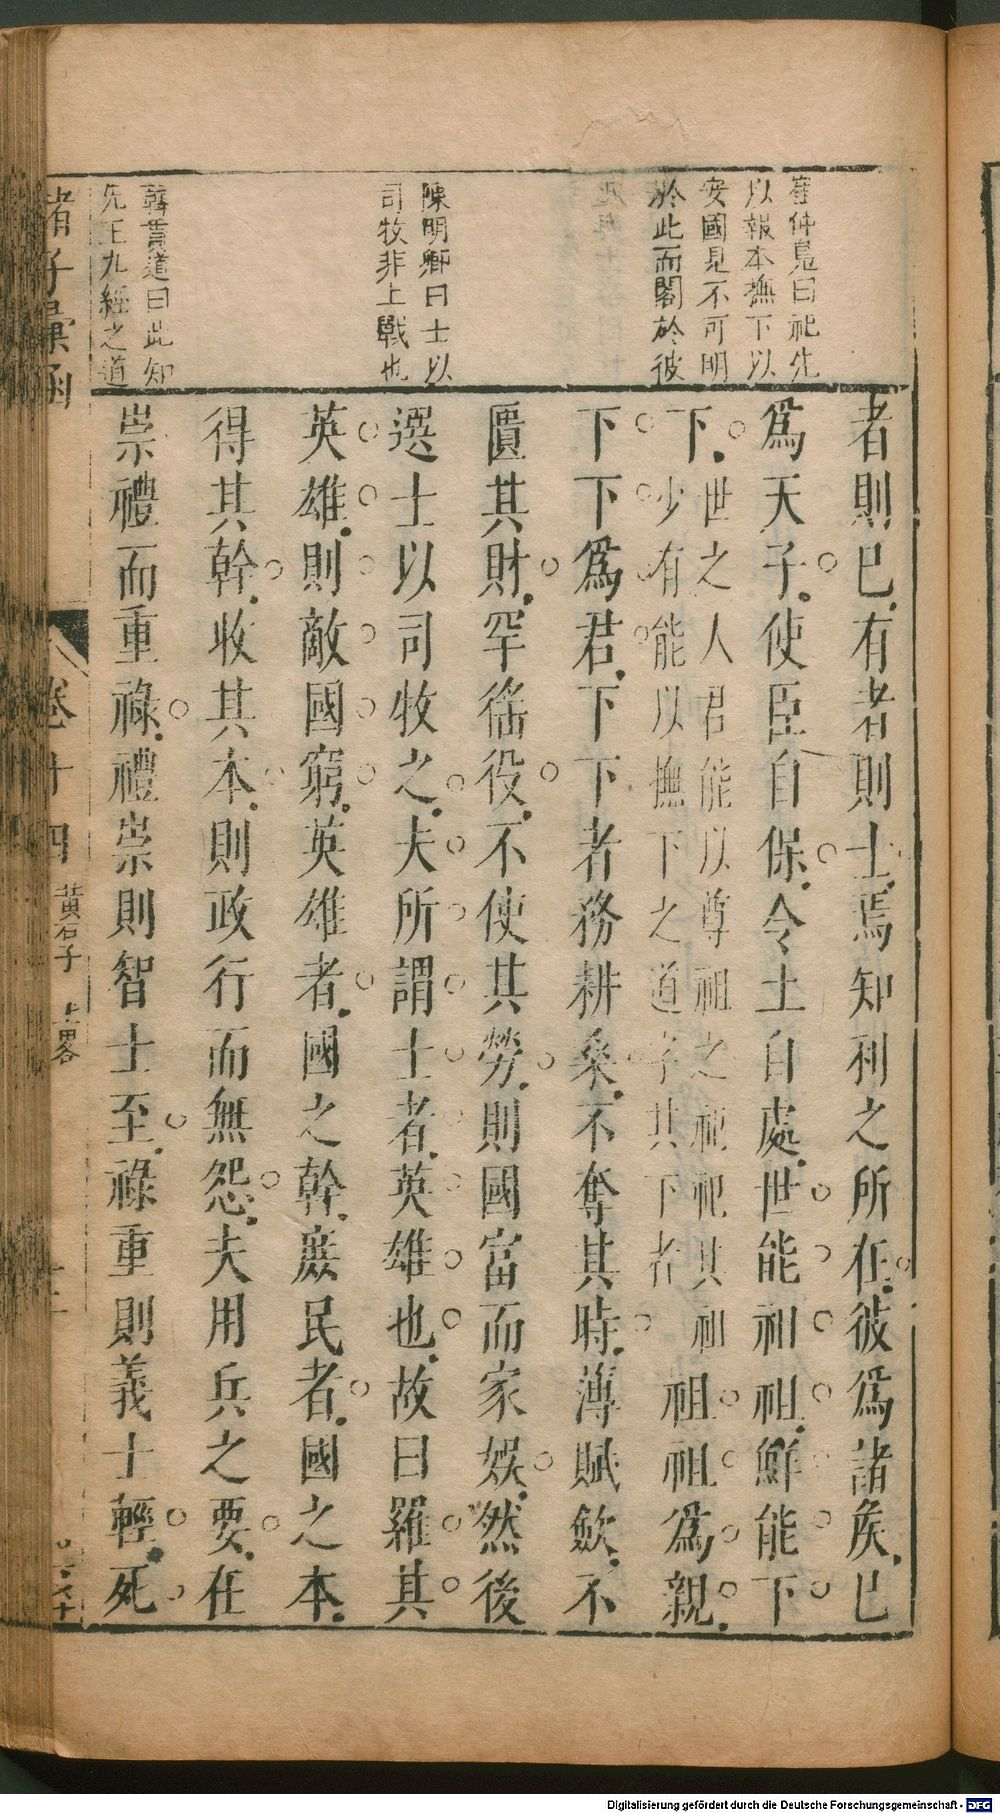 崔仲鳧曰祀先
以報本撫下以
安國見不可明
於此而闇於彼
陳明卿曰士以
司牧非上戰也
韓貫道曰此知
先王九經之道
者則已有者則士焉知利之所在彼爲諸矦已
爲天子使臣自保令士自處世能祖祖鮮能下
下世之人君能以尊祖之祀祀其祖
少有能以撫下之道子其下者
祖祖爲親
下下爲君下下者務耕桑不奪其時薄賦斂不
匱其財罕徭役不使其勞則國富而家娛然後
選士以司牧之夫所謂士者英雄也故曰羅其
英雄則敵國窮英雄者國之幹庶民者國之本
得其幹收其本則政行而無怨夫用兵之要在
崇禮而重祿禮崇則智士至祿重則義士輕死
諸子彙函
卷十四
黃石子
上畧
Digitalisierung gefördert durch die Deutsche Forschungsgemeinschaft - DFG